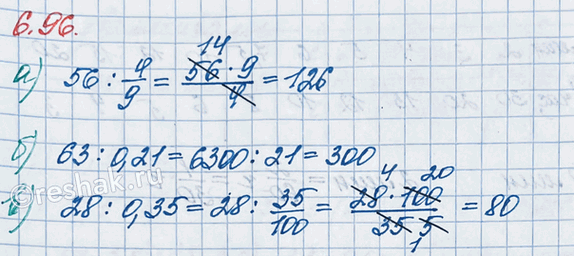 6.96.
а) 56 : 4/9 = (56 · 9)/4 = 126
14
б) 63 : 0,21 = 6300 : 21 = 300
в) 28 : 0,35 = 28 : 35/100 = (28 · 100)/35 = 80
4 20
5
1
©reshak.ru